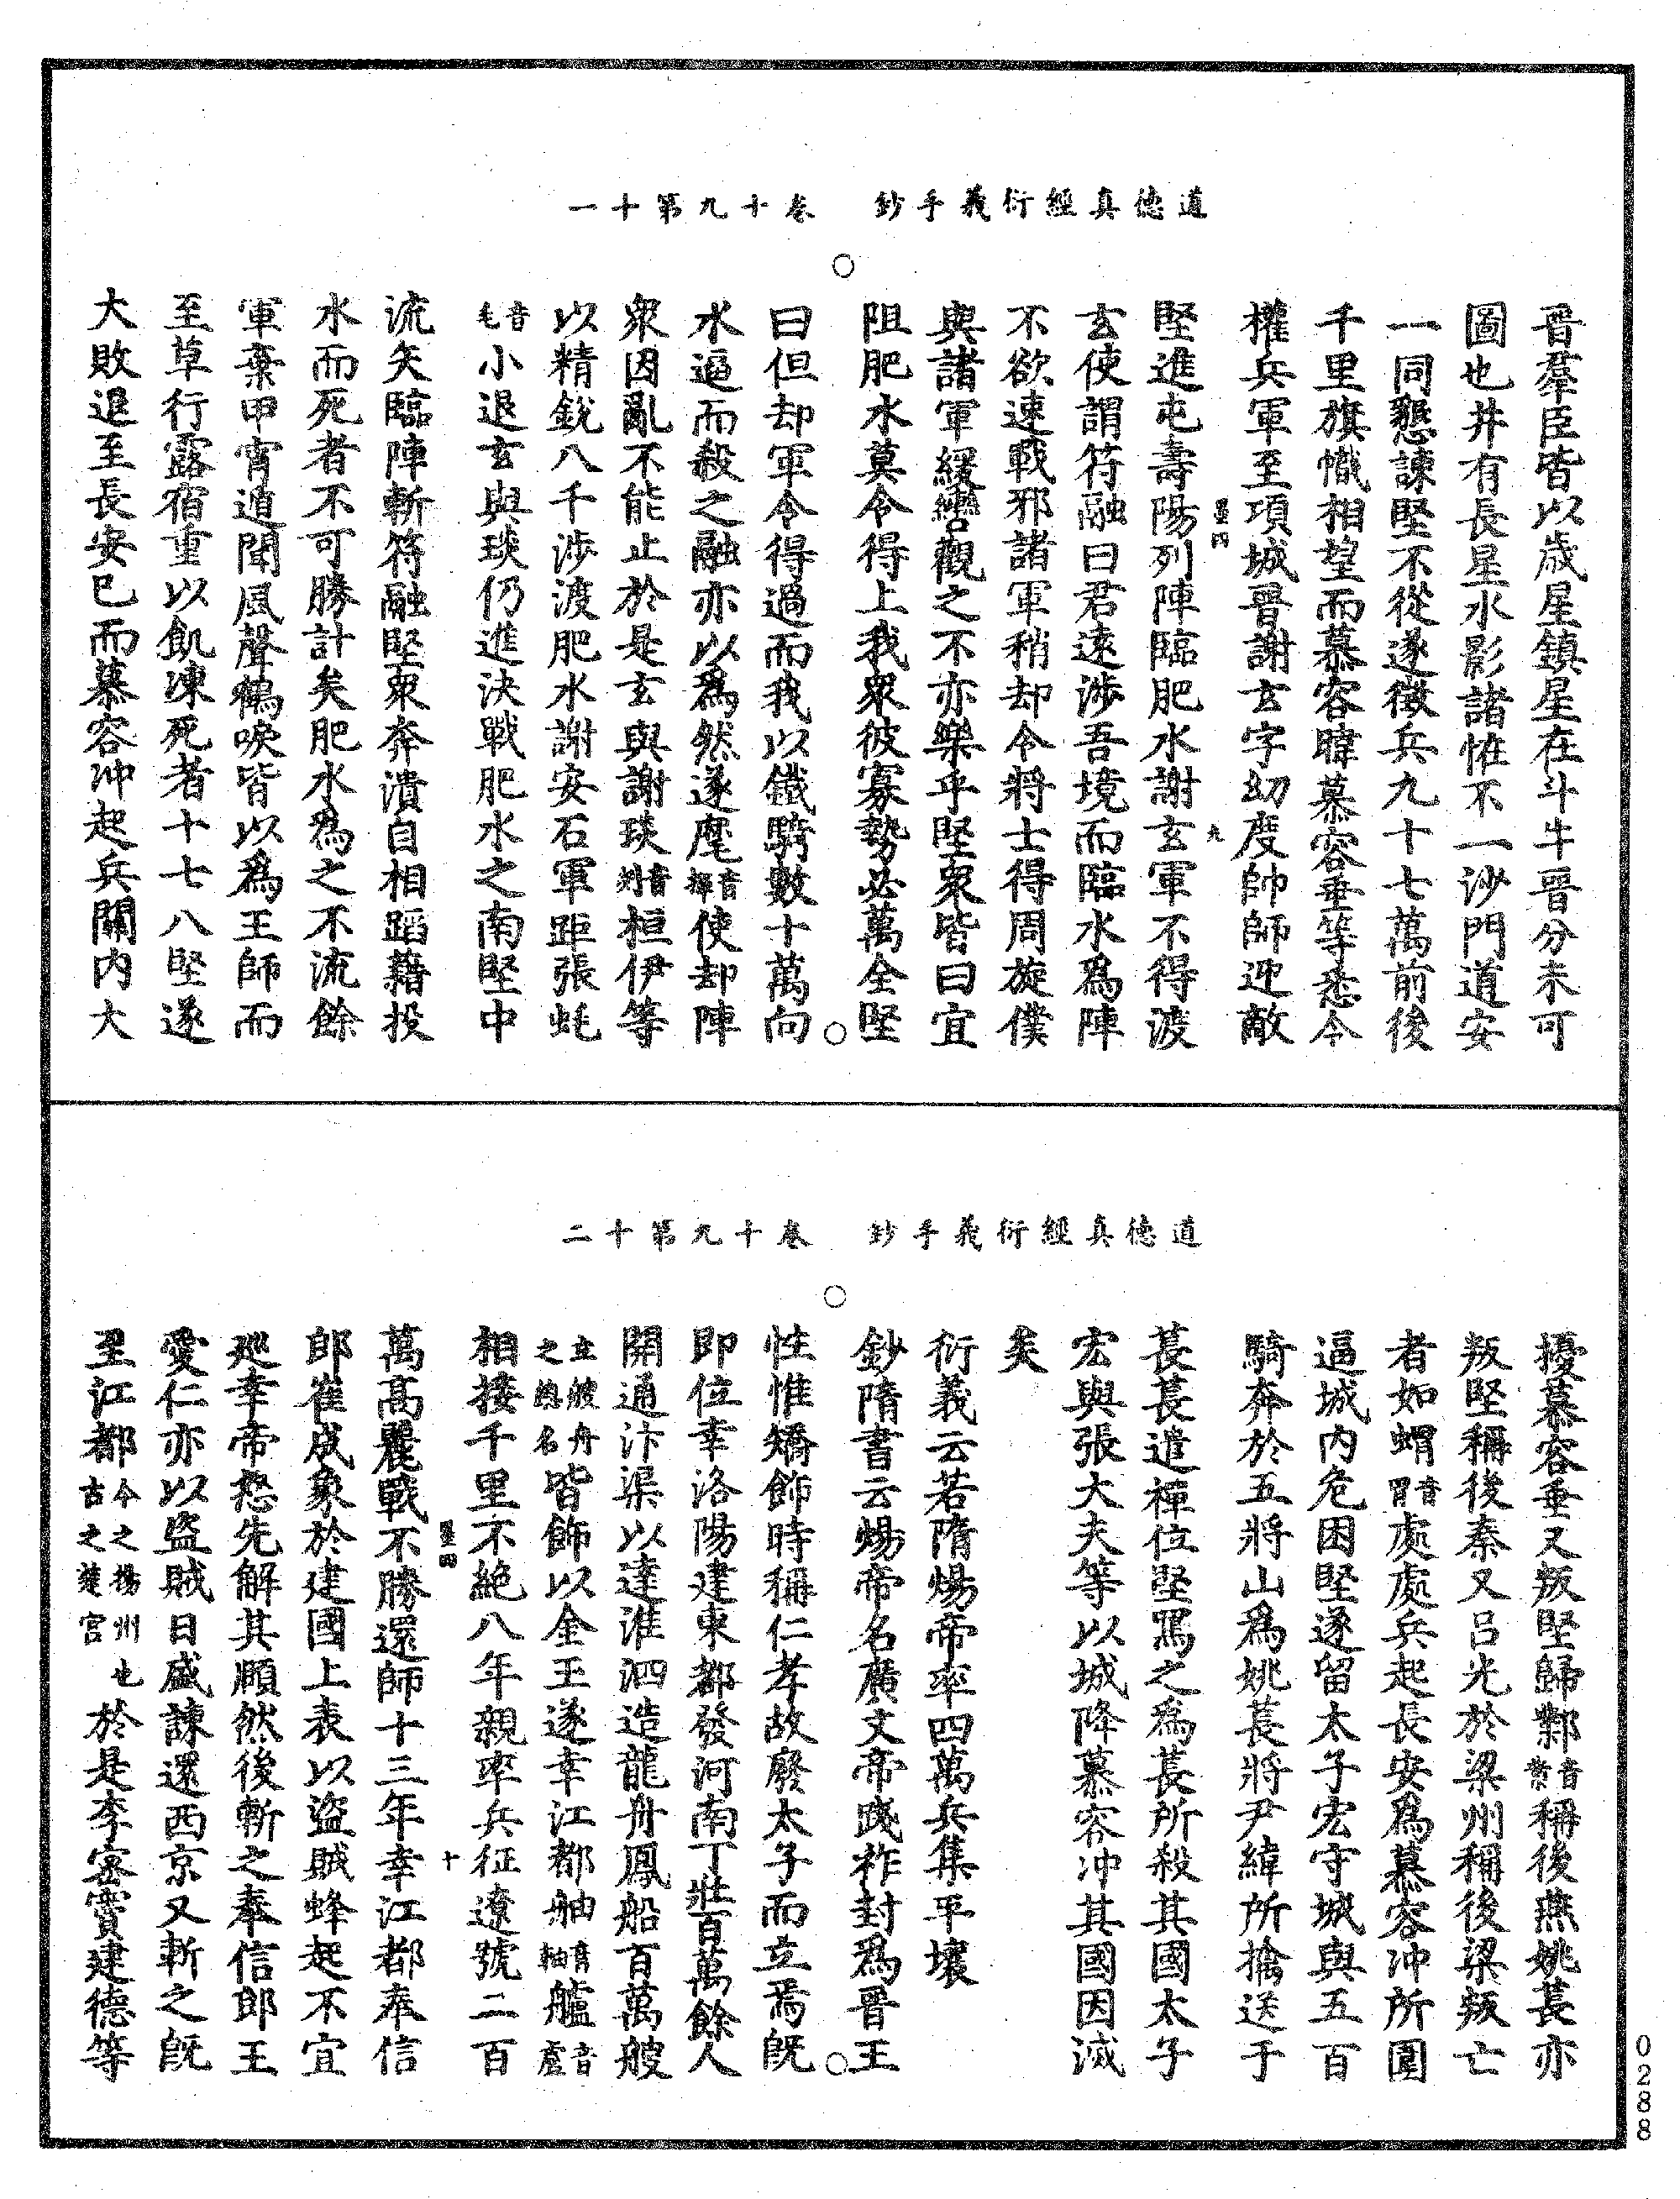 道德真經衍義手鈔　卷十九第十一
晉羣臣皆以歲星鎮星在斗牛晉分未可
圖也井有長星水影諸惟不一沙門道安
一同懇諫堅不從遂徵兵九十七萬前後
千里旗幟相望而慕容暐慕容垂等悉令
權兵軍至項城晉謝玄字幼度帥師迎敵
堅進屯壽陽列陣臨肥水謝玄軍不得渡
玄使謂符融曰君遠涉吾境而臨水爲陣
不欲速戰邪諸軍稍却令將士得周旋僕
與諸軍緩轡觀之不亦樂乎堅衆皆曰宜
阻肥水莫令得上我衆彼寡勢必萬全堅
曰但却軍令得過而我以鐵騎數十萬向
水逼而殺之融亦以爲然遂麾音揮使却陣
衆因亂不能止於是玄與謝琰音剡桓伊等
以精銳八千涉渡肥水謝安石軍距張蚝
音毛小退玄與琰仍進決戰肥水之南堅中
流矢臨陣斬符融堅衆奔潰自相蹈藉投
水而死者不可勝計矣肥水爲之不流餘
軍棄甲宵遁聞風聲鶴唳皆以爲王師而
至草行露宿重以飢凍死者十七八堅遂
大敗退至長安已而慕容沖起兵關內大
道德真經衍義手鈔　卷十九第十二
擾慕容垂又叛堅歸鄴音業稱後燕姚萇亦
叛堅稱後秦又呂光於梁州稱後梁叛亡
者如蝟音胃處處兵起長安爲慕容沖所圍
逼城內危困堅遂留太子宏守城與五百
騎奔於五將山爲姚萇將尹緯所擒送于
萇萇遣禪位堅罵之爲萇所殺其國太子
宏與張大夫等以城降慕容沖其國因滅
矣
衍義云若隋煬帝率四萬兵集平壤
鈔隋書云煬帝名廣文帝踐祚封爲晉王
性惟矯飾時稱仁孝故廢太子而立焉既
即位幸洛陽建東都發河南丁壯百萬餘人
開通汴渠以達淮泗造龍舟鳳船百萬艘
立艘舟之總名皆飾以金玉遂幸江都舳音軸艫音盧
相接千里不絕八年親率兵征遼號二百
萬高麗戰不勝還師十三年幸江都奉信
郎崔成象於建國上表以盜賊蜂起不宜
巡幸帝怒先解其頤然後斬之奉信郎王
愛仁亦以盜賊日盛諫還西京又斬之既
至江都今之揚州也古之楚宮於是李密竇建德等
0288